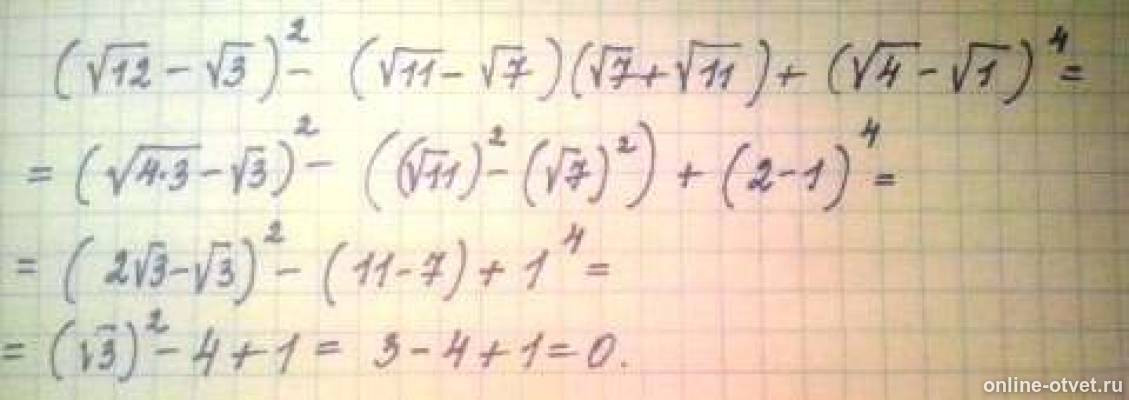 (√12 - √3)² - (√11 - √7)(√7 + √11) + (√4 - √1)⁴ =
= (√4·3 - √3)² - ((√11)² - (√7)²) + (2 - 1)⁴ =
= (2√3 - √3)² - (11 - 7) + 1⁴ =
= (√3)² - 4 + 1 = 3 - 4 + 1 = 0.
online-otvet.ru